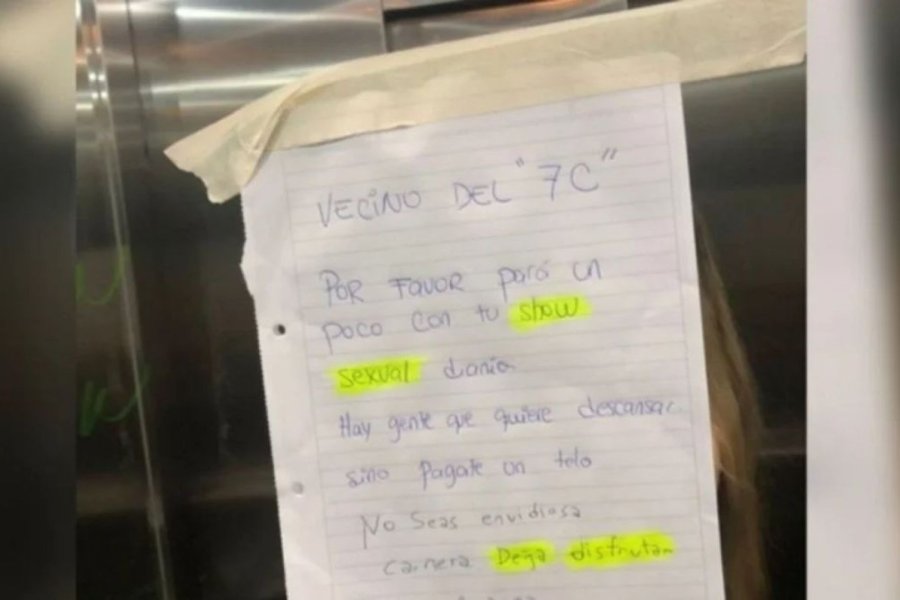 VECINO DEL "7C"
POR FAVOR pará un
poco con tu show
sexual diario
Hay gente que quiere descansar
sino pagate un telo
No Seas envidiosa
Deja disfrutar